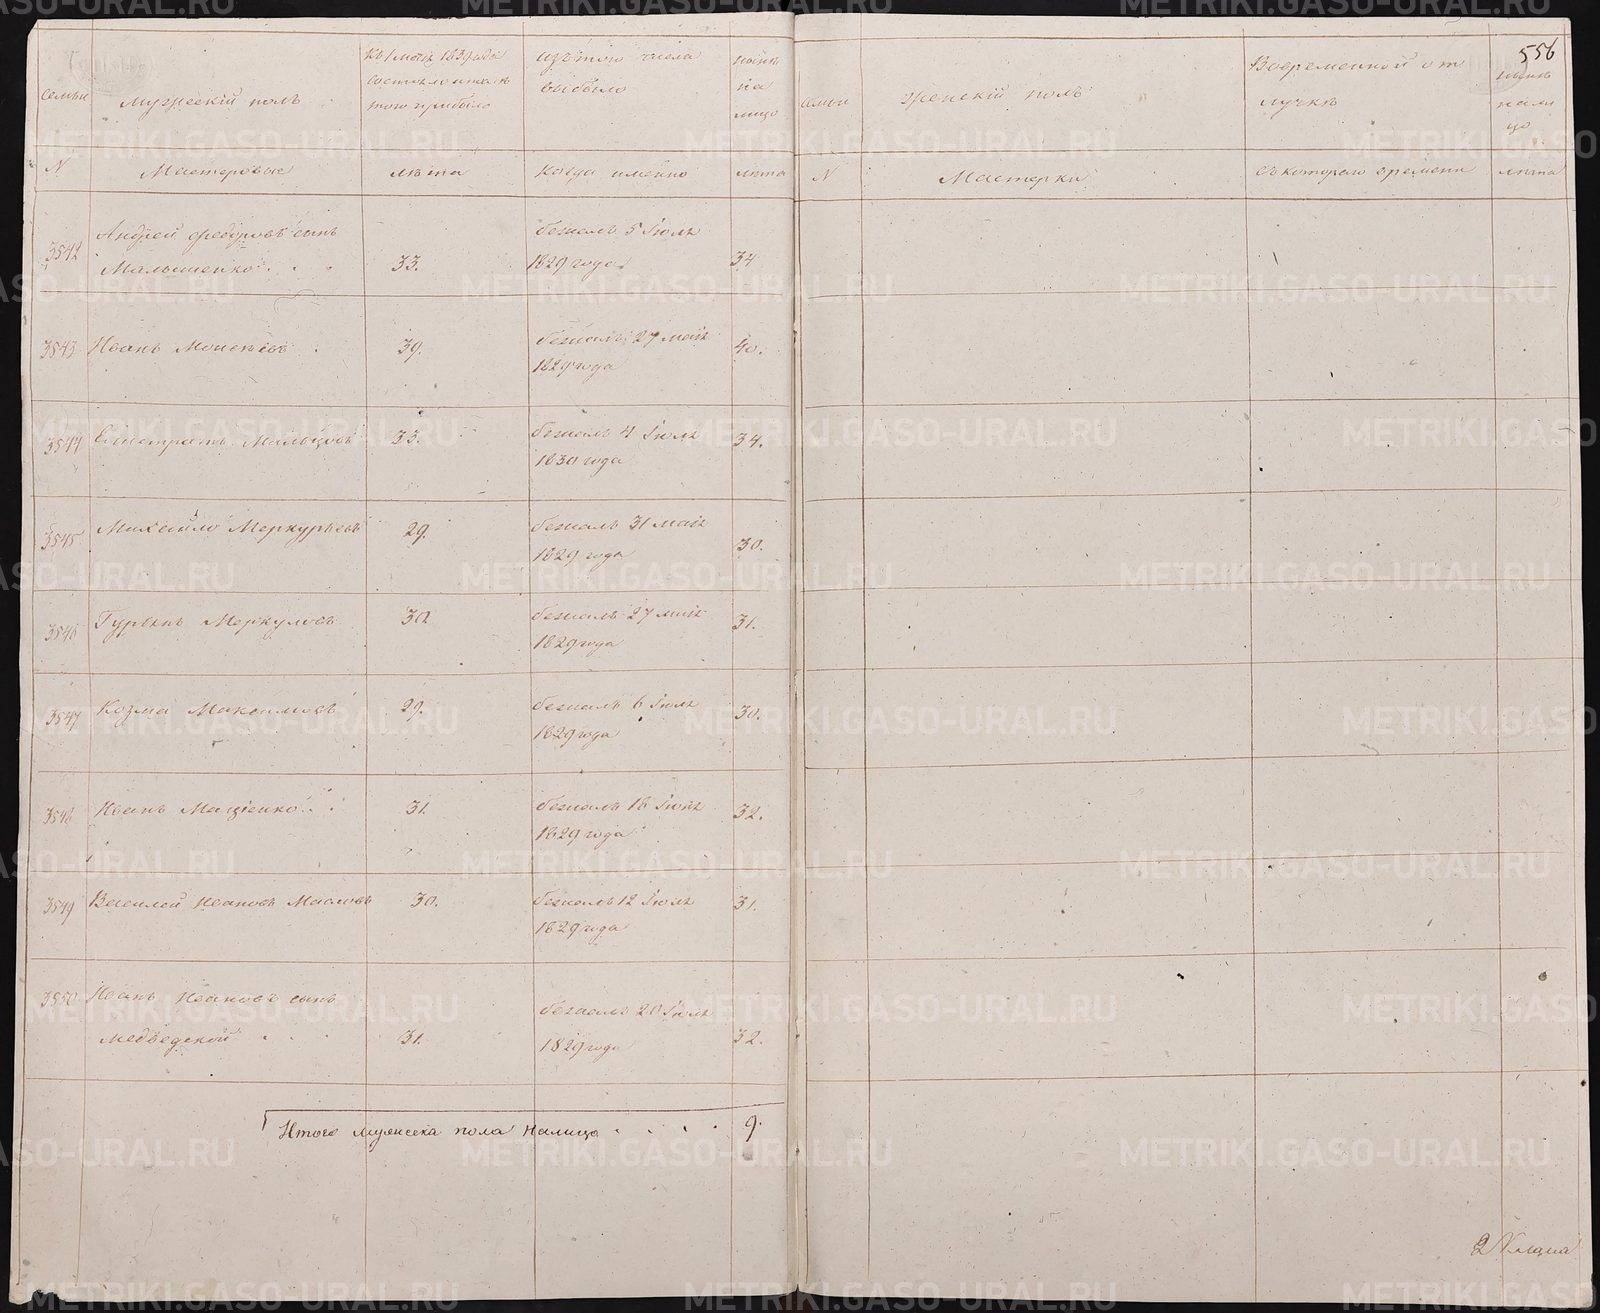 556
семьи
мужескій полъ
состояло и посл
того прибыло
изътого числа
выбыло
нынѣ
на
лицо
семьи
женскій полъ
Вовременной от
лучкѣ
нынѣ
нали
цо
N
Мастеровые
лѣта
когда именно
лѣта
N
Мастерки
съкотораго времени
лѣта
3542
Андрей Федоровъ сынъ
Малышенко
33.
бежалъ 5 Іюля
1829 года
34
3543
Иванъ Моисеевъ
39.
бежалъ 27 маія
1829 года
40.
3544
Елистратъ Мальцовъ
33.
бежалъ 4 Іюля
1830 года
34.
3545
Михайло Меркурьевъ
29.
бежалъ 31 маія
1829 года
30.
3546
Гурьянъ Меркуловъ
30.
бежалъ 27 маія
1829 года
31.
3547
Козма Максимовъ
29.
бежалъ 6 Іюля
1829 года
30.
3548
Иванъ
31.
бежалъ 16 Іюня
1829 года
32.
3549
Василей Ивановъ Масловъ
30.
бежалъ 12 Іюля
1829 года
31.
3550
Иванъ Ивановъ сынъ
медведской
31.
бежалъ 20 Іюля
1829 года
32.
Итого мужеска пола налицо
9.
METRIKI.GASO-URAL.RU